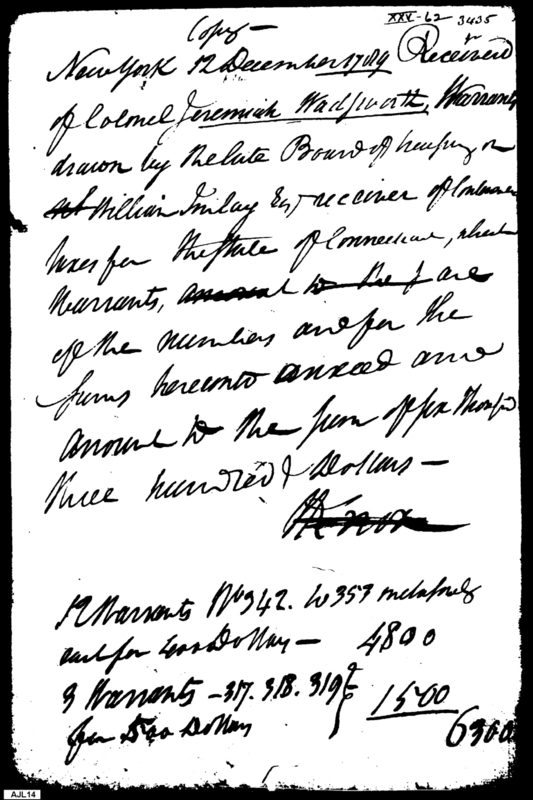 Copy —
XXV-62 3435
New York 12 December 1789 Received
of Colonel Jeremiah Wadsworth, Warrants
drawn by the late Board of treasury on
William Imlay Esq receiver of Continental
taxes for the State of Connecticut, which
Warrants, amount to the are
of the numbers and for the
sums hereunto annexed and
amount to the sum of six Thousand
three hundred Dollars —
HKnox
12 Warrants No 342. to 353 inclusively
each for 400 Dollars — 4800
3 Warrants — 317. 318. 319
for 500 Dollars 1500
6300
AJL14